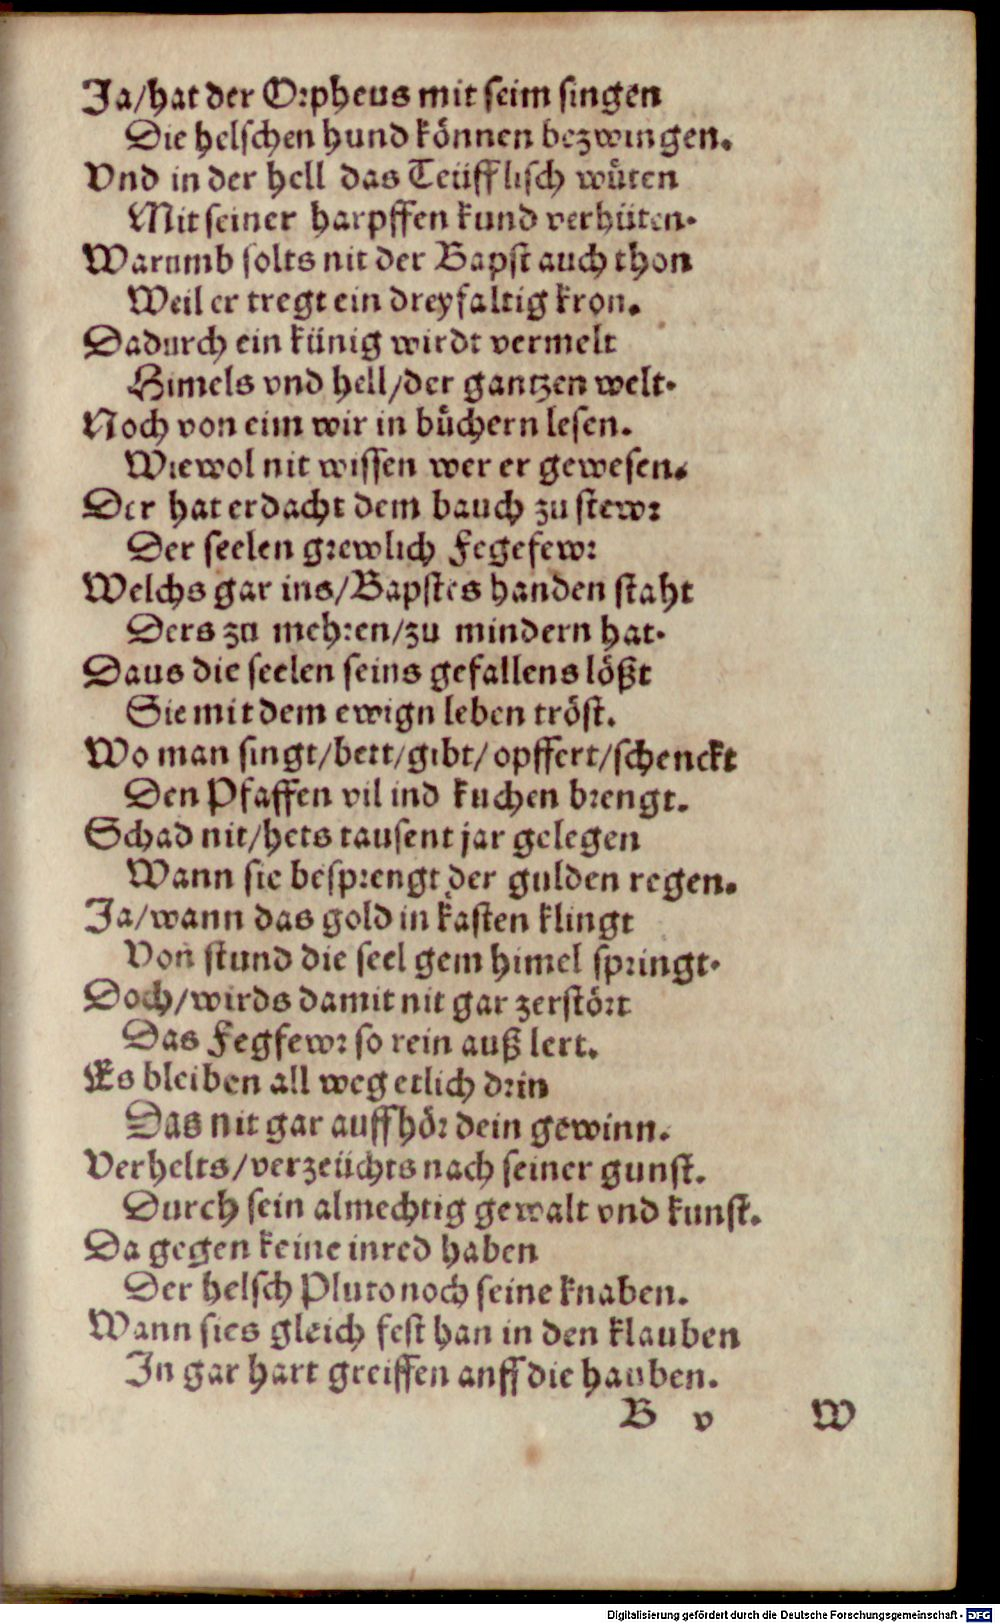 Ja/hat der Orpheus mit seim singen
Die helschen hund können bezwingen.
Vnd in der hell das Teüfflisch wüten
Mit seiner harpffen kund verhüten.
Warumb solts nit der Bapst auch thon
Weil er tregt ein dreyfaltig kron.
Dadurch ein künig wirdt vermelt
Himels vnd hell/der gantzen welt.
Noch von eim wir in büchern lesen.
Wiewol nit wissen wer er gewesen.
Der hat erdacht dem bauch zu stewr
Der seelen grewlich Fegefewr
Welchs gar ins/Bapstes handen staht
Ders zu mehren/zu mindern hat.
Daus die seelen seins gefallens lößt
Sie mit dem ewign leben tröst.
Wo man singt/bett/gibt/opffert/schenckt
Den Pfaffen vil ind kuchen brengt.
Schad nit/hets tausent jar gelegen
Wann sie besprengt der gulden regen.
Ja/wann das gold in kasten klingt
Von stund die seel gem himel springt.
Doch/wirds damit nit gar zerstört
Das Fegfewr so rein auß lert.
Es bleiben all weg etlich drin
Das nit gar auffhör dein gewinn.
Verhelts/verzeüchts nach seiner gunst.
Durch sein almechtig gewalt vnd kunst.
Da gegen keine inred haben
Der helsch Pluto noch seine knaben.
Wann sies gleich fest han in den klauben
In gar hart greiffen auff die hauben.
B v W
Digitalisierung gefördert durch die Deutsche Forschungsgemeinschaft - DFG